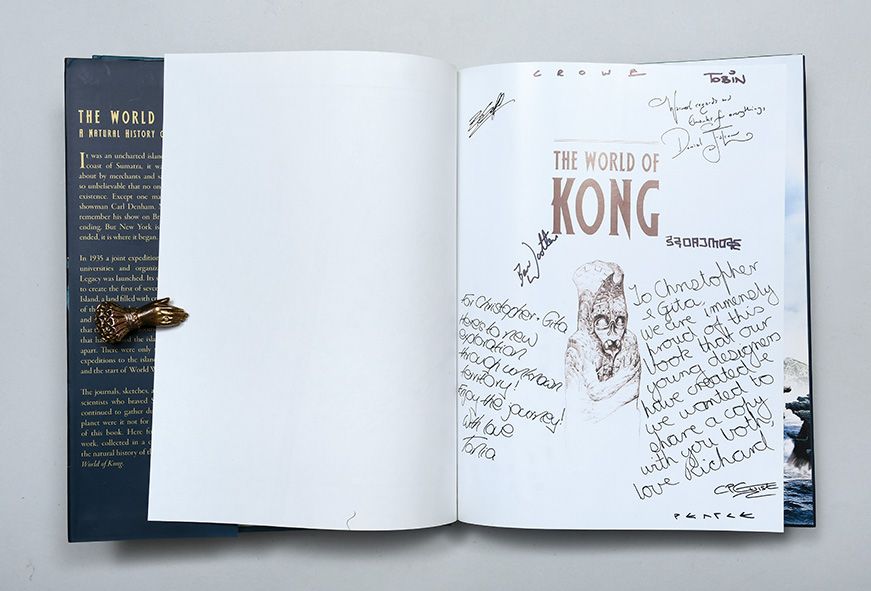 THE WORLD
A NATURAL HISTORY O
It was an uncharted islan
coast of Sumatra, it wa
about by merchants and sa
so unbelievable that no on
existence. Except one ma
showman Carl Denham.
remember his show on Br
ending. But New York is
ended, it is where it began.
In 1935 a joint expedition
universities and organiz
Legacy was launched. Its
to create the first of sever
Island, a land filled with c
of th
that
that ha
apart. There were only
expeditions to the islan
and the start of World W
The journals, sketches, a
scientists who braved S
continued to gather du
planet were it not for
of this book. Here fo
work, collected in a c
the natural history of th
World of Kong.
CROWE
TOBIN
Warmest regards and
thanks for everything,
Daniel Falconer
THE WORLD OF
KONG
Ben Wootten
For Christopher + Gita
Heres to new
exploration
through unknown
territory!
Enjoy the journey!
with love
Tania
To Christopher
& Gita,
we are immensely
proud of this
book that our
young designers
have created &
we wanted to
share a copy
with you both,
love Richard